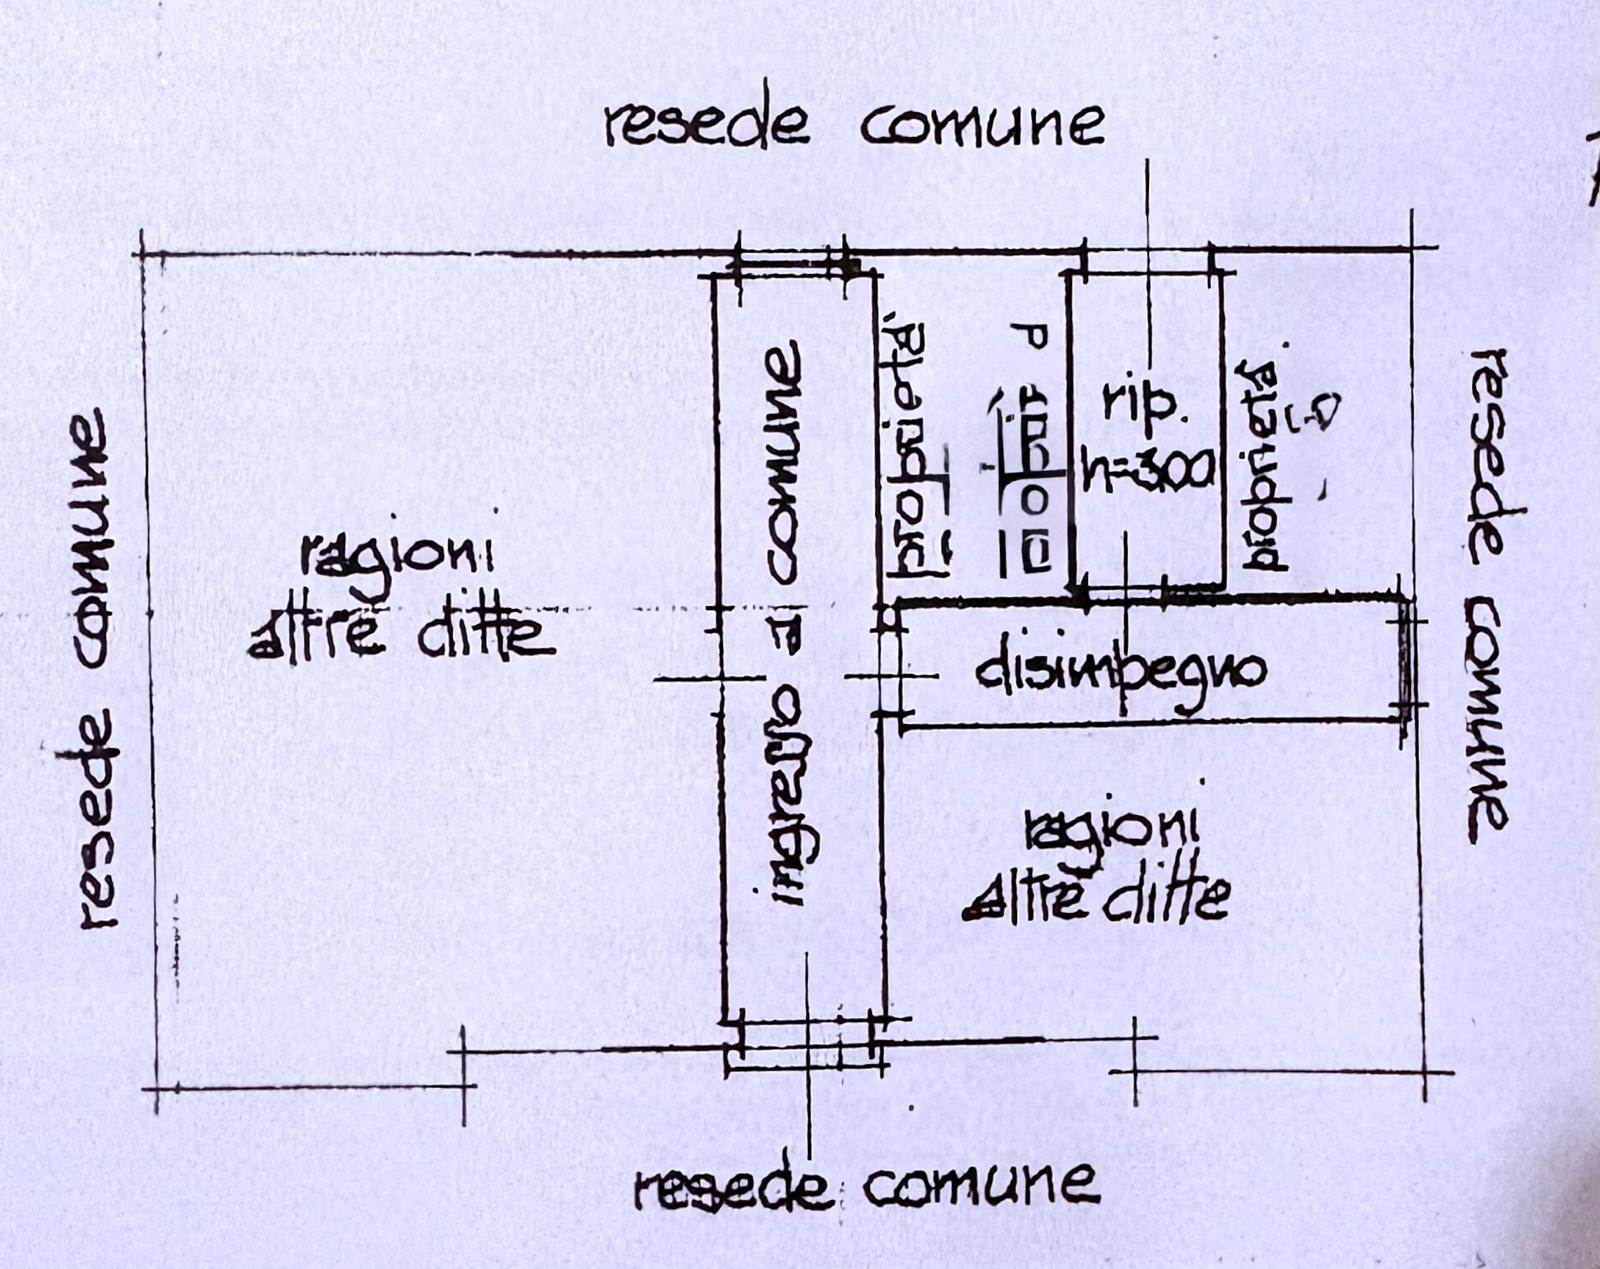 resede comune
resede comune
ragioni
altre ditte
ingresso a comune
proprietà
rip.
h=300
proprietà
disimpegno
ragioni
altre ditte
resede comune
resede comune